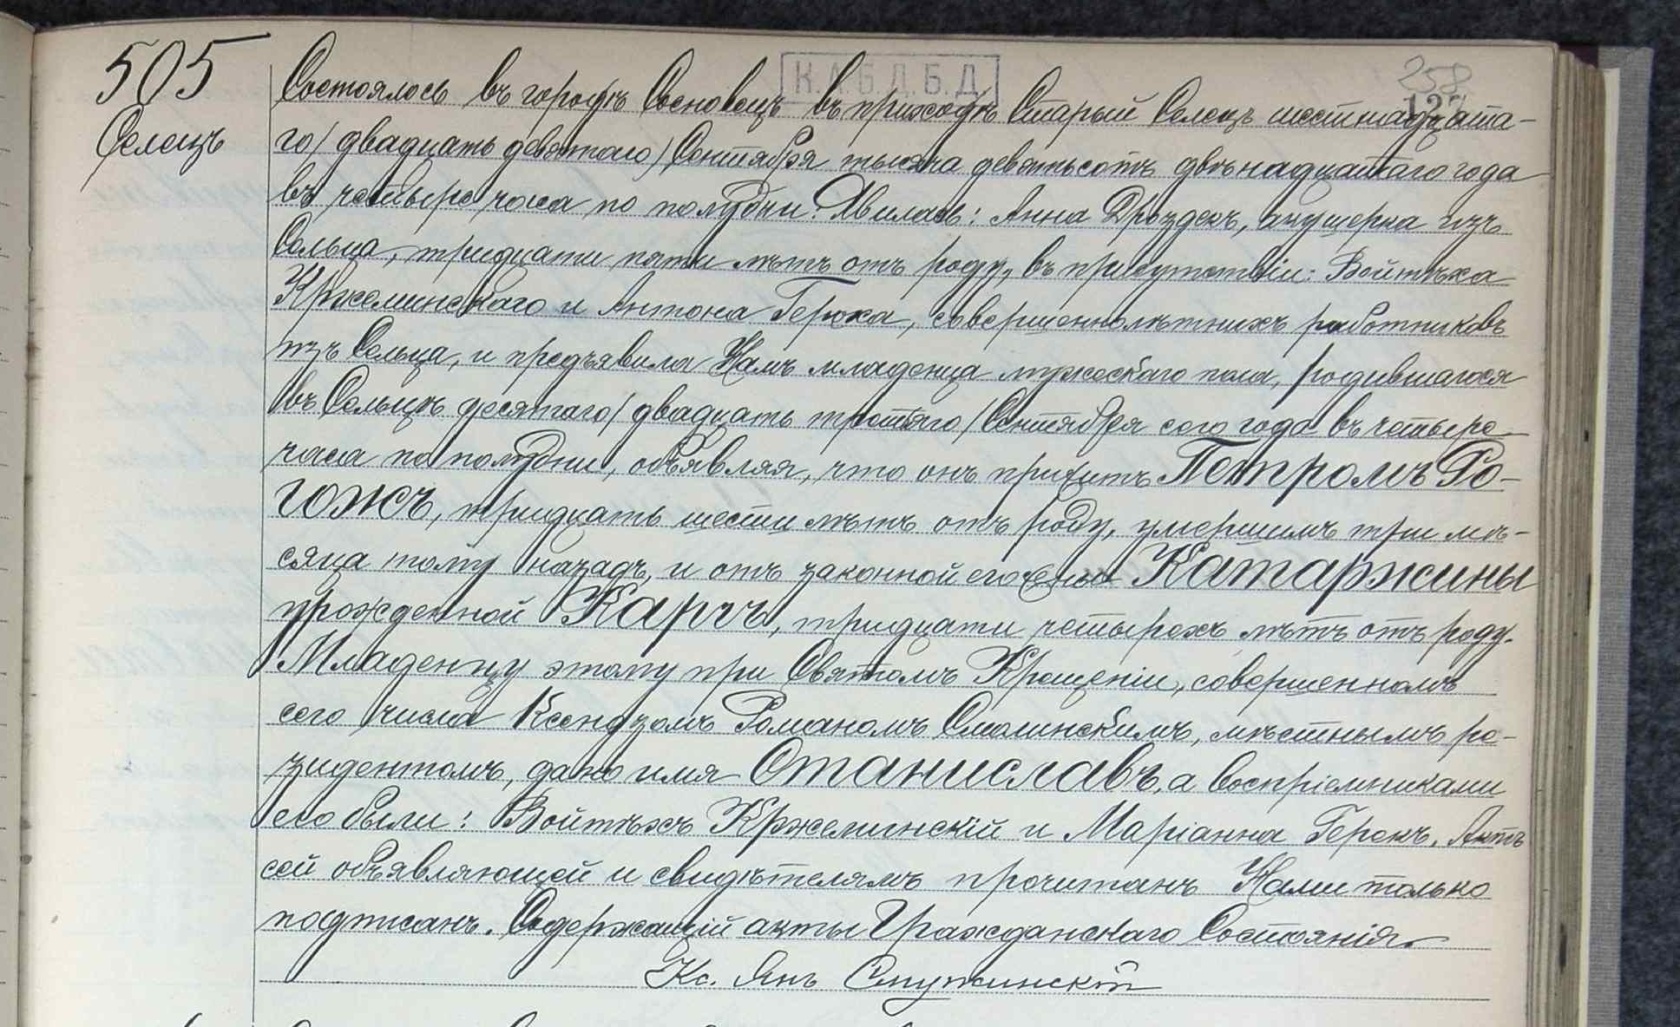 505
Селецъ
К.А.Б.Д.Б.Д.
258
127
Состоялось въ городѣ Сосновецъ въ приходѣ Старый Селецъ шестнадцата-
го/двадцать девятаго/Сентября тысяча девятьсотъ двѣнадцатаго года
въ четыре часа по полудни. Явилась: Анна Дроздекъ, акушерка изъ
Сельца, тридцати пяти лѣтъ отъ роду, въ присутствіи: Войтѣха
Кржеминскаго и Антона Герока, совершеннолѣтнихъ работниковъ
изъ Сельца, и предъявила Намъ младенца мужескаго пола, родившагося
въ Сельцѣ десятаго/двадцать третьяго/Сентября сего года въ четыре
часа по полудни, объявляя, что онъ прижитъ Петромъ Ро-
гожъ, тридцать шести лѣтъ отъ роду, умершимъ три мѣ-
сяца тому назадъ, и отъ законной его жены Катаржины
урожденной Карчъ, тридцати четырехъ лѣтъ отъ роду.
Младенцу этому при Святомъ Крещеніи, совершенномъ
сего числа Ксендзомъ Романомъ Смолинскимъ, мѣстнымъ ре-
зидентомъ, дано имя Станиславъ, а воспріемниками
его были: Войтѣхъ Кржеминскій и Маріанна Герокъ. Актъ
сей объявляющей и свидѣтелямъ прочитанъ Нами только
подписанъ. Содержащій акты Гражданскаго Состоянія
Кс. Янъ